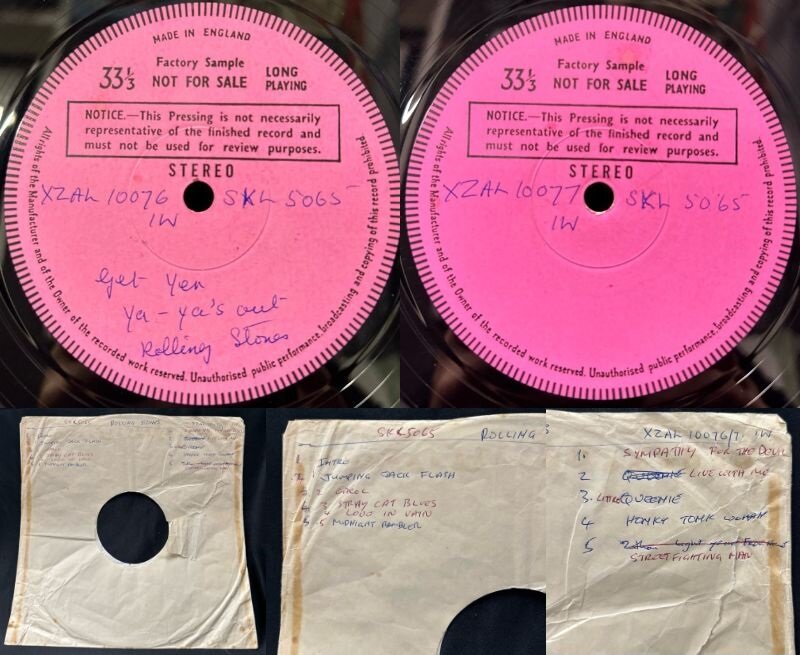 MADE IN ENGLAND
Factory Sample
33⅓ NOT FOR SALE LONG PLAYING
NOTICE.—This Pressing is not necessarily
representative of the finished record and
must not be used for review purposes.
STEREO
XZAL 10076 SKL 5065
1W
Get Yer
Ya-Ya's out
Rolling Stones
All rights of the Manufacturer and of the Owner of the recorded work reserved. Unauthorised public performance, broadcasting and copying of this record prohibited
MADE IN ENGLAND
Factory Sample
33⅓ NOT FOR SALE LONG PLAYING
NOTICE.—This Pressing is not necessarily
representative of the finished record and
must not be used for review purposes.
STEREO
XZAL 10077 SKL 5065
1W
All rights of the Manufacturer and of the Owner of the recorded work reserved. Unauthorised public performance, broadcasting and copying of this record prohibited
ROLLING STONES
SKL5065 ROLLING S
1 INTRO
JUMPING JACK FLASH
2 CAROL
3 STRAY CAT BLUES
4 LOVE IN VAIN
5 MIDNIGHT RAMBLER
XZAL 10076/7 1W
1. SYMPATHY FOR THE DEVIL
2 QUEENIE LIVE WITH ME
3. LITTLE QUEENIE
4 HONKY TONK WOMAN
5 Light years From Home
STREET FIGHTING MAN